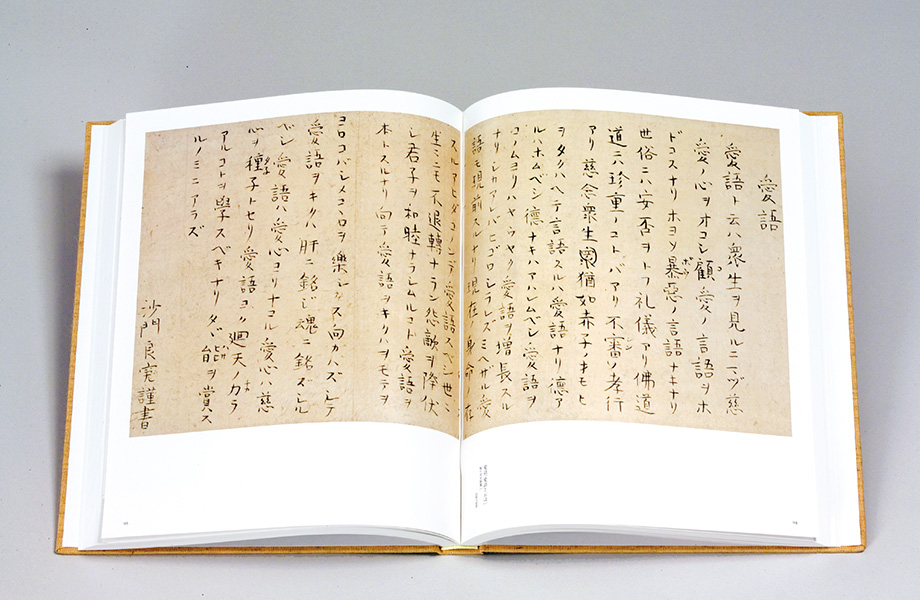 愛語
愛語ト云ハ衆生ヲ見ルニマヅ慈
愛ノ心ヲオコシ顧愛ノ言語ヲホ
ドコスナリホヨソ暴惡ノ言語ナキナリ
世俗ニハ安否ヲトフ礼儀アリ佛道
道ニハ珍重ノコトバアリ不審ノ孝行
アリ慈念衆生猶如赤子ノオモヒ
ヲタクハヘテ言語スルハ愛語ナリ德ア
ルハホムベシ德ナキハアハレムベシ愛語ヲ
コノムヨリハヤウヤク愛語ヲ増長スル
ナリシカアレバヒゴロシラレズミヘザル愛
語モ現前スルナリ現在ノ身命ノ在
スルアヒダコノンデ愛語スベシ世ミ
生ミニモ不退轉ナラン怨敵ヲ降伏
シ君子ヲ和睦ナラシムルコト愛語ヲ
本トスルナリ向テ愛語ヲキクハヲモテヲ
ヨロコバシメコヽロヲ樂シクス向カズシテ
愛語ヲキクハ肝ニ銘ジ魂ニ銘ズシル
ベシ愛語ハ愛心ヨリヲコル愛心ハ慈
心ヲ種子トセリ愛語ヨク廻天ノカラ
アルコトヲ學スベキナリタヾ能ヲ賞ス
ルノミニアラズ
沙門良寛謹書